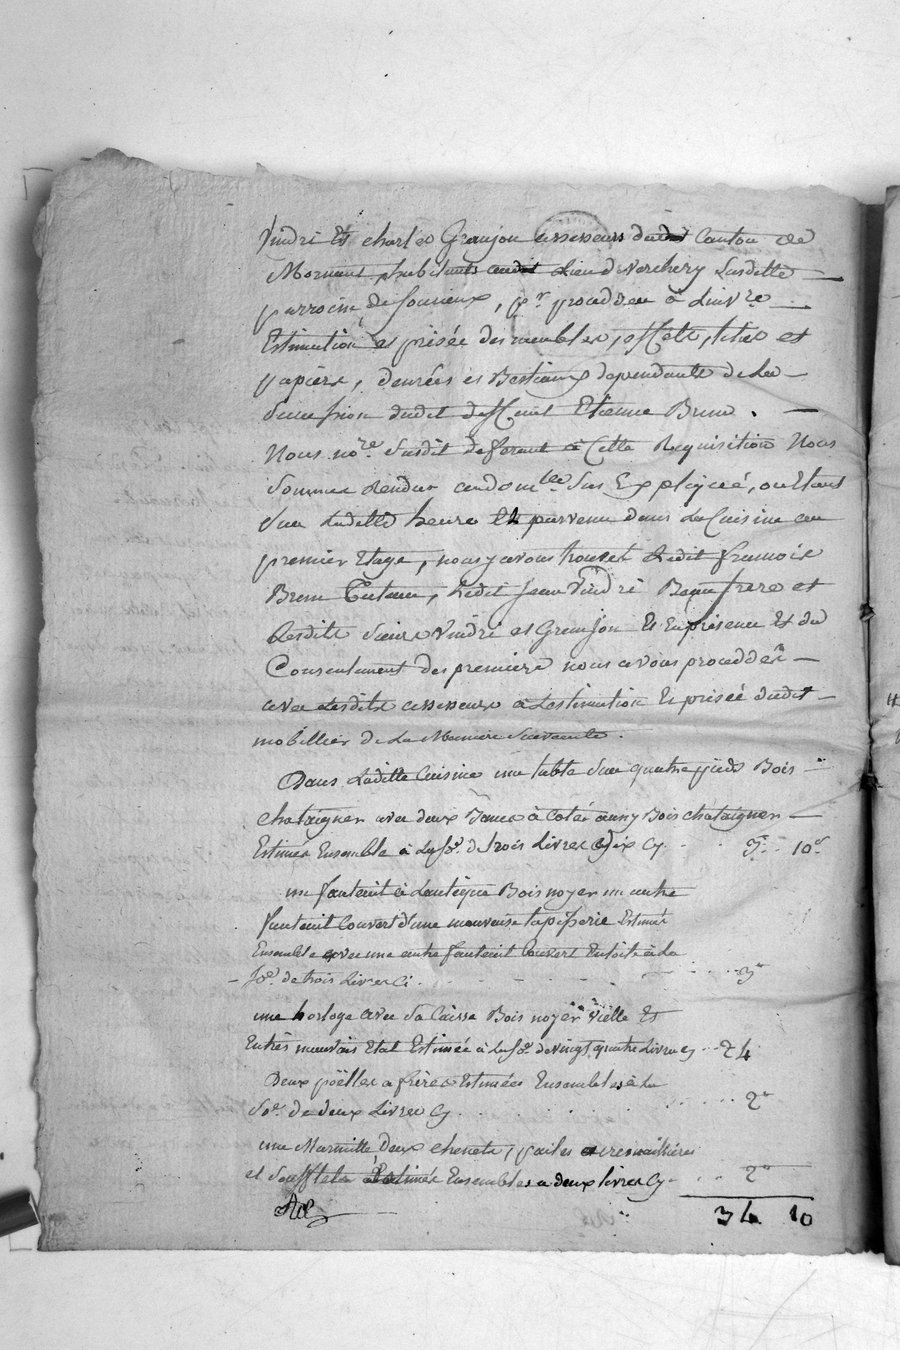 Vindri Et charles Granjon assesseurs dudit Canton de
Mornant, habitants audit Lieu de verchery Lasditte
parroisse de sourieux, pr. proceder à Linvre
Estimation et prisée des meubles, effets, titres et
papiers, denrées et Bestiaux dependants de La
succession dudit deffunt Etienne Brun.
Nous nore. susdit deferant à Cette Requisition Nous
sommes Rendus audomlle sus Explicqué, ou Etant
sur Laditte heure et parvenu dans La Cuisine au
premier Etage, nous y avons trouvé Ledit francois
Brun Tuteur, Ledit Jean Vindri Beaufrere et
Lesdits sieurs Vindri et Granjon Et En presence Et du
Consentement des premiers nous avons procedder
avec Lesdits assesseurs à Lestimation Et prisée dudit
mobillier de La Maniere suivante.
Dans Laditte Cuisine une table sur quatre pieds Bois
chataigner avec deux Bancs à Coté aussy Bois chataigner
Estimés Ensemble à La so. de trois Livres dix Cy 3# 10s
un fauteuil à Lantique Bois noyer un autre
fauteuil Couvert d'une mauvaise tapisserie Estimés
Ensemble avec une autre fauteuil Couvert En toile à La
so. de trois Livres Ci 3#
une horloge avec sa Caisse Bois noyer vielle Et
En très mauvais Etat Estimée à La so. de vingt quatre Livres Cy 24
Deux poëlles a frire Estimées Ensembles à La
so. de deux Livres Cy 2#
une Marmitte, Deux chenets, cremaillieres
et soufflet Estimés Ensembles a deux livres Cy 2#
34 10